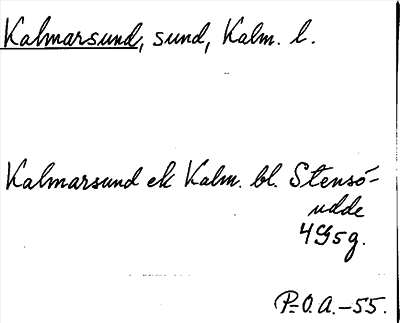 Kalmarsund, sund, Kalm. l.
Kalmarsund ek Kalm. bl. Stensö-
udde
4G5g.
P-O.A.-55.